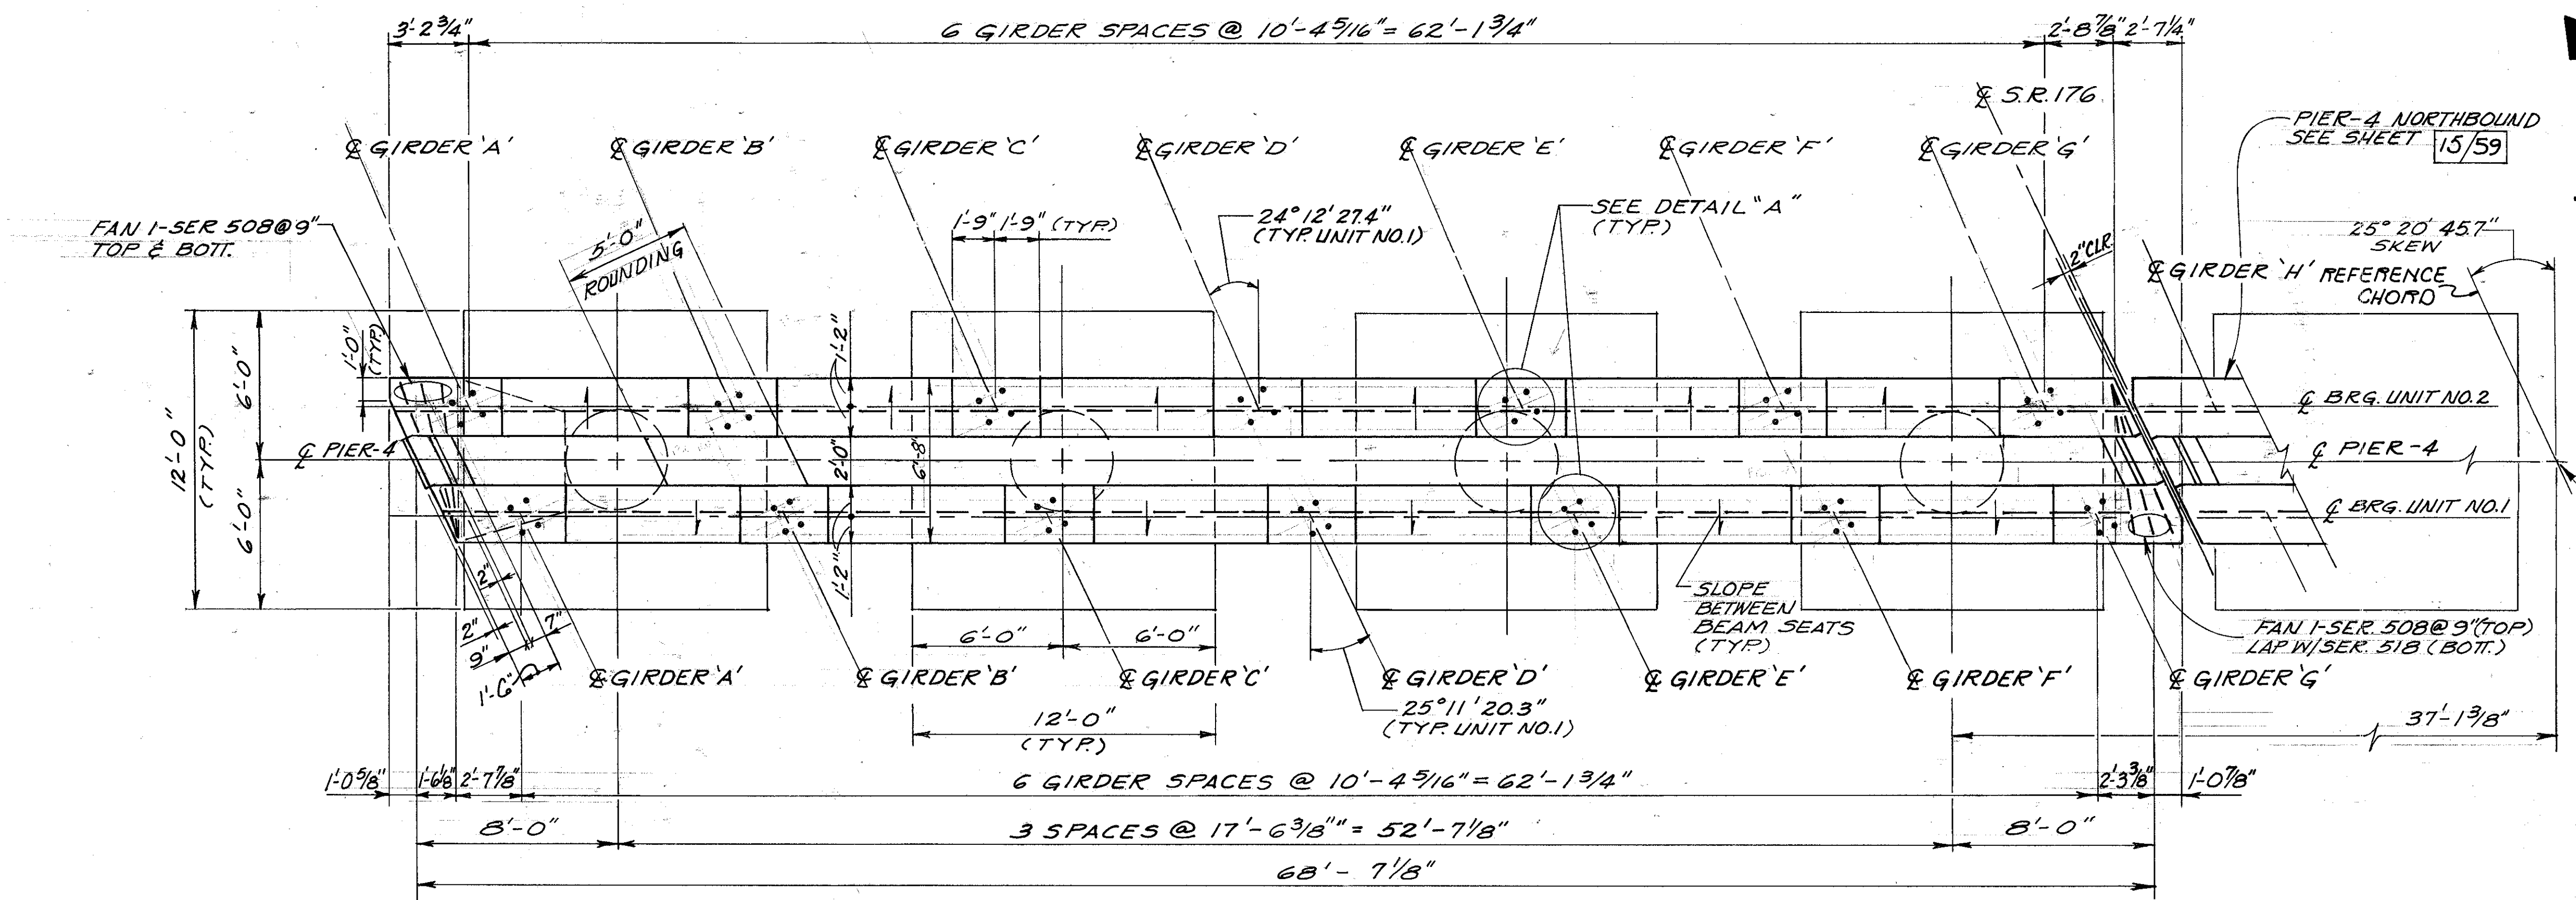 3'-2 3/4"
6 GIRDER SPACES @ 10'-4 5/16" = 62'-1 3/4"
2'-8 7/8"
2'-7 1/4"
℄ S.R. 176
PIER-4 NORTHBOUND
SEE SHEET 15/59
℄ GIRDER 'A'
℄ GIRDER 'B'
℄ GIRDER 'C'
℄ GIRDER 'D'
℄ GIRDER 'E'
℄ GIRDER 'F'
℄ GIRDER 'G'
FAN 1-SER 508@9"
TOP & BOTT.
5'-0"
ROUNDING
1'-9" 1'-9" (TYP.)
24° 12' 27.4"
(TYP. UNIT NO.1)
SEE DETAIL "A"
(TYP.)
2" CLR.
25° 20' 45.7"
SKEW
℄ GIRDER 'H'
REFERENCE
CHORD
12'-0"
(TYP.)
6'-0"
6'-0"
1'-0"
(TYP.)
1'-2"
2'-0"
6'-8"
1'-2"
℄ PIER-4
℄ BRG. UNIT NO.2
℄ PIER-4
℄ BRG. UNIT NO.1
2"
2"
9"
7"
1'-6"
6'-0"
6'-0"
12'-0"
(TYP.)
SLOPE
BETWEEN
BEAM SEATS
(TYP.)
FAN 1-SER. 508@9"(TOP)
LAP W/SER. 518 (BOTT.)
℄ GIRDER 'A'
℄ GIRDER 'B'
℄ GIRDER 'C'
℄ GIRDER 'D'
℄ GIRDER 'E'
℄ GIRDER 'F'
℄ GIRDER 'G'
25° 11' 20.3"
(TYP. UNIT NO.1)
37'-1 3/8"
1'-0 5/8"
1'-6 1/8"
2'-7 7/8"
6 GIRDER SPACES @ 10'-4 5/16" = 62'-1 3/4"
2'-3 3/8"
1'-0 7/8"
8'-0"
3 SPACES @ 17'-6 3/8"" = 52'-7 1/8"
8'-0"
68'-7 1/8"